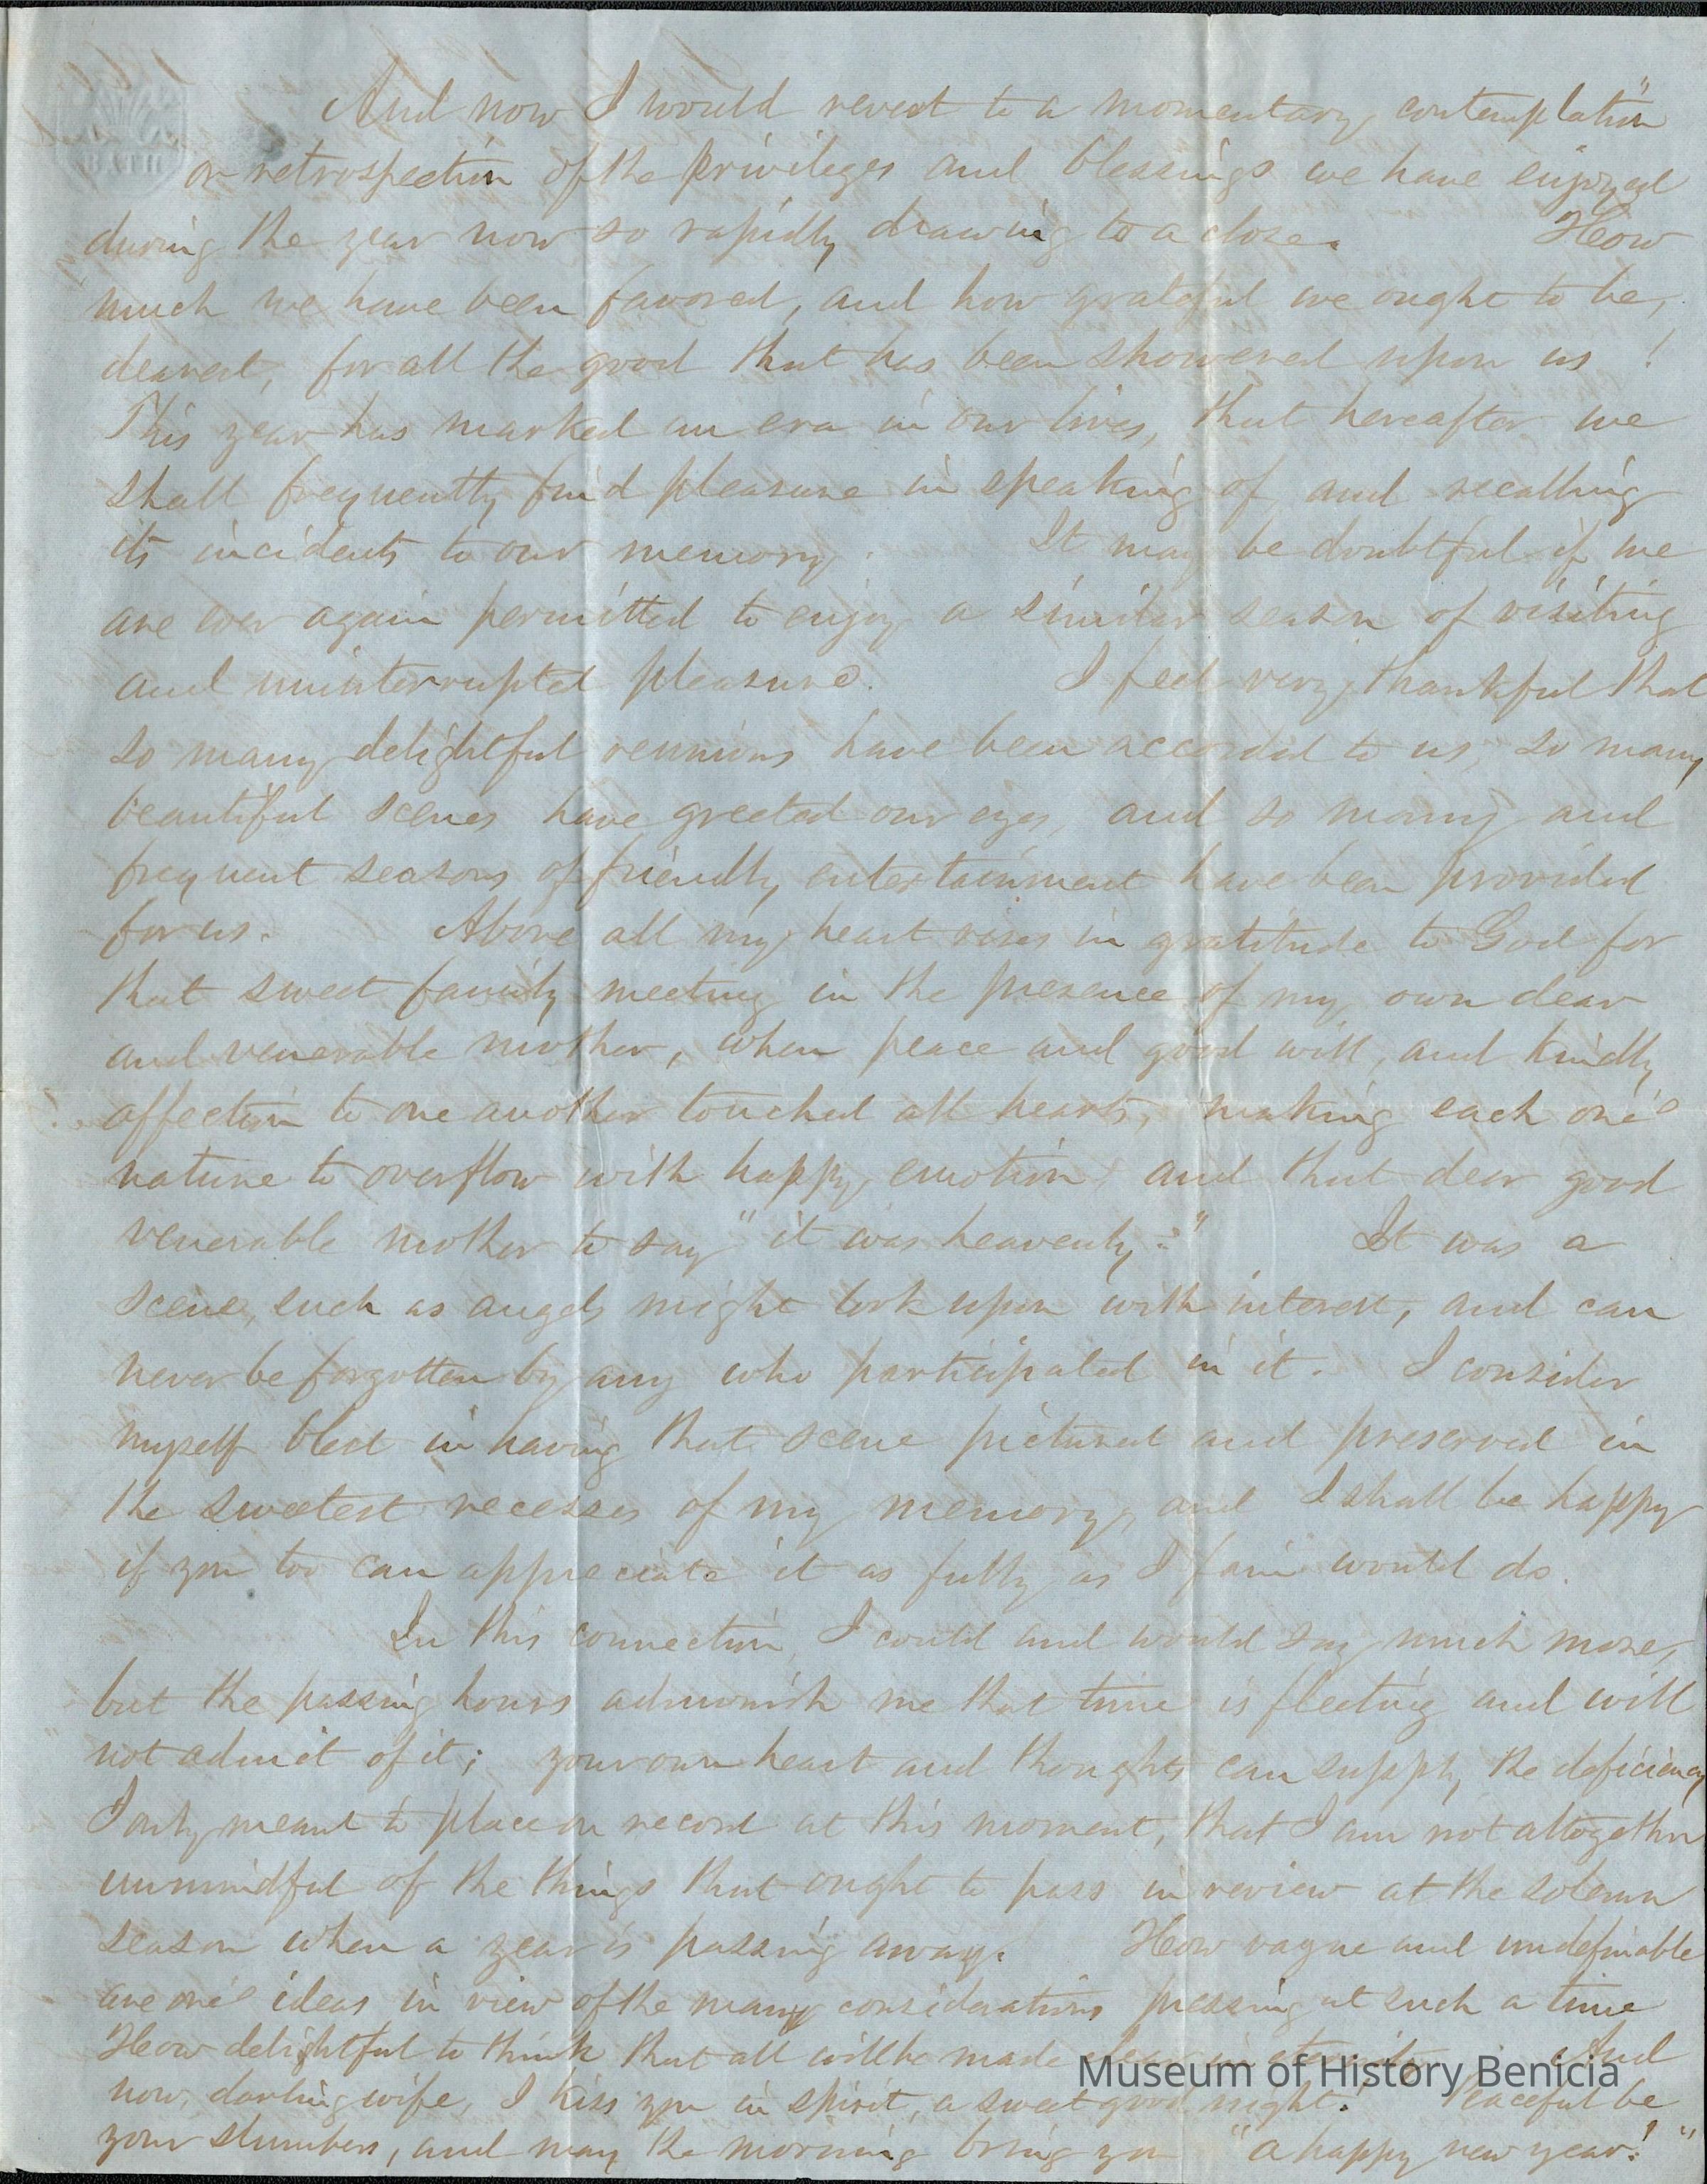 BATH
And now I would revert to a momentary contemplation
or retrospection of the privileges and blessings we have enjoyed
during the year now so rapidly drawing to a close. How
much we have been favored, and how grateful we ought to be,
dearest, for all the good that has been showered upon us !
This year has marked an era in our lives, that hereafter we
shall frequently find pleasure in speaking of and recalling
its incidents to our memory. It may be doubtful if we
are ever again permitted to enjoy a similar season of visiting
and uninterrupted pleasure. I feel very thankful that
so many delightful reunions have been accorded to us, so many
beautiful scenes have greeted our eyes, and so many and
frequent seasons of friendly entertainment have been provided
for us. Above all my heart rises in gratitude to God for
that sweet family meeting in the presence of my own dear
and venerable mother, when peace and good will, and kindly
affection to one another touched all hearts, making each one's
nature to overflow with happy emotion, and that dear good
venerable mother to say "it was heavenly." It was a
scene, such as angels might look upon with interest, and can
never be forgotten by any who participated in it. I consider
myself blest in having that scene pictured and preserved in
the sweetest recesses of my memory, and I shall be happy
if you too can appreciate it as fully as I fain would do.
In this connection, I could and would say much more,
but the passing hours admonish me that time is fleeting and will
not admit of it; your own heart and thoughts can supply the deficiency
I only meant to place on record at this moment, that I am not altogether
unmindful of the things that ought to pass in review at the solemn
season when a year is passing away. How vague and undefinable
are one's ideas in view of the many considerations pressing at such a time
How delightful to think that all will be made clear in eternity. And
Museum of History Benicia
now, darling wife, I kiss you in spirit, a sweet good night! Peaceful be
your slumbers, and may the morning bring you "a happy new year!"